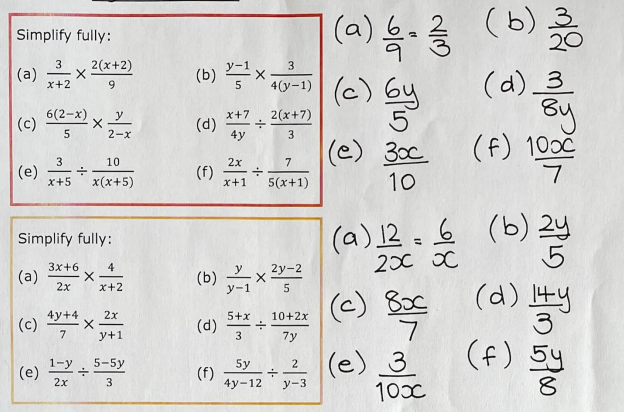 Simplify fully:
(a) 3/(x+2) × 2(x+2)/9
(b) (y−1)/5 × 3/(4(y−1))
(c) 6(2−x)/5 × y/(2−x)
(d) (x+7)/4y ÷ 2(x+7)/3
(e) 3/(x+5) ÷ 10/(x(x+5))
(f) 2x/(x+1) ÷ 7/(5(x+1))
(a) 6/9 = 2/3
(b) 3/20
(c) 6y/5
(d) 3/8y
(e) 3x/10
(f) 10x/7
Simplify fully:
(a) (3x+6)/2x × 4/(x+2)
(b) y/(y−1) × (2y−2)/5
(c) (4y+4)/7 × 2x/(y+1)
(d) (5+x)/3 ÷ (10+2x)/7y
(e) (1−y)/2x ÷ (5−5y)/3
(f) 5y/(4y−12) ÷ 2/(y−3)
(a) 12/2x = 6/x
(b) 2y/5
(c) 8x/7
(d) 14y/3
(e) 3/10x
(f) 5y/8